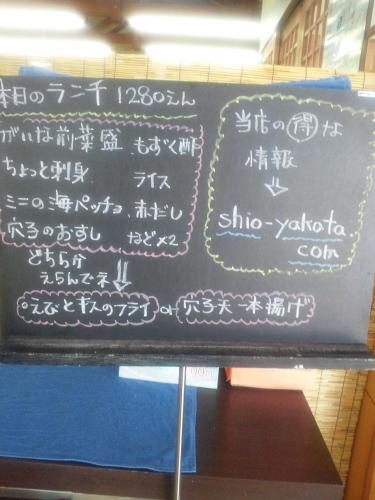 本日のランチ 1280えん
がいな前菜盛
ちょっと刺身
ミニの海ペッチョ
穴子のおすし
もずく酢
ライス
赤だし
など×2
どちらか
えらんでネ
⇓
えびとキスのフライ or 穴子天一本揚げ
当店の得な
情報
⇓
shio-yakata.
com